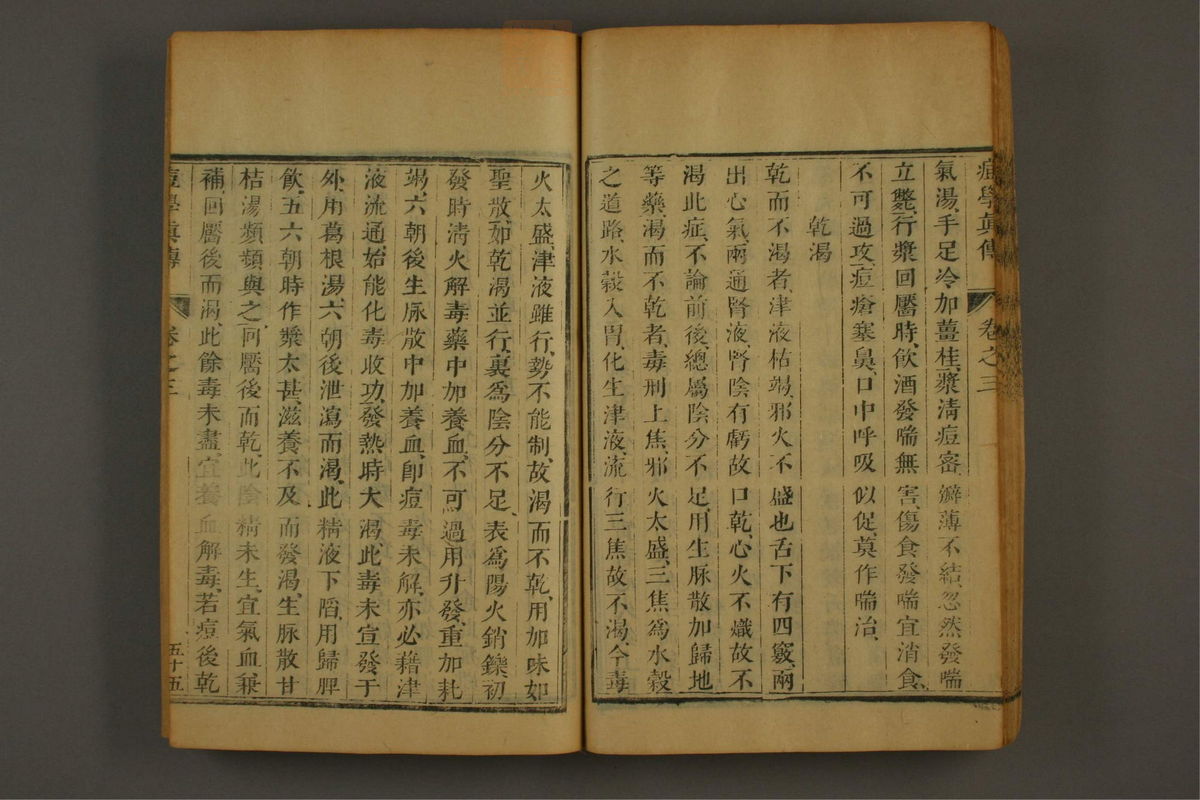 痘學真傳 卷之三
氣湯手足冷加薑桂漿清痘密癬薄不結忽然發喘
立斃行漿回靨時飲酒發喘無害傷食發喘宜消食
不可過攻痘瘡塞鼻口中呼吸似促莫作喘治
乾渴
乾而不渴者津液枯竭邪火不盛也舌下有四竅兩
出心氣兩通腎液腎陰有虧故口乾心火不熾故不
渴此症不論前後總屬陰分不足用生脉散加歸地
等藥渴而不乾者毒刑上焦邪火太盛三焦為水穀
之道路水穀入胃化生津液流行三焦故不渴今毒
火太盛津液雖行勢不能制故渴而不乾用加味如
聖散如乾渴並行裏為陰分不足表為陽火銷鑠初
發時清火解毒藥中加養血不可過用升發重加耗
竭六朝後生脉散中加養血卽痘毒未解亦必藉津
液流通始能化毒收功發熱時大渴此毒未宣發于
外用葛根湯六朝後泄瀉而渴此精液下陷用歸脾
飲五六朝時作漿太甚滋養不及而發渴生脉散甘
桔湯頻頻與之回靨後而乾此陰精未生宜氣血兼
補回靨後而渴此餘毒未盡宜養血解毒若痘後乾
痘學真傳 卷之三 五十五